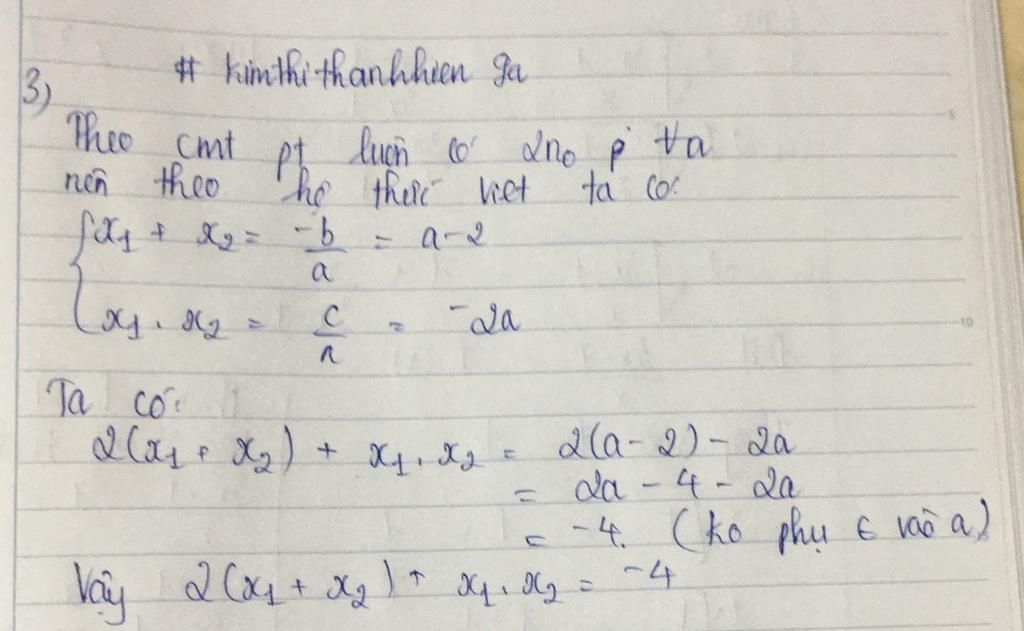 # kimthithanhhien ga
3)
Theo cmt pt luôn có 2no p̂ ∀a
nên theo hệ thức viet ta có:
{x₁ + x₂ = -b/a = a-2
x₁ . x₂ = c/a = -2a
Ta có:
2(x₁ + x₂) + x₁ . x₂ = 2(a-2) - 2a
= 2a - 4 - 2a
= -4. (ko phụ ∈ vào a)
Vậy 2(x₁ + x₂) + x₁ . x₂ = -4